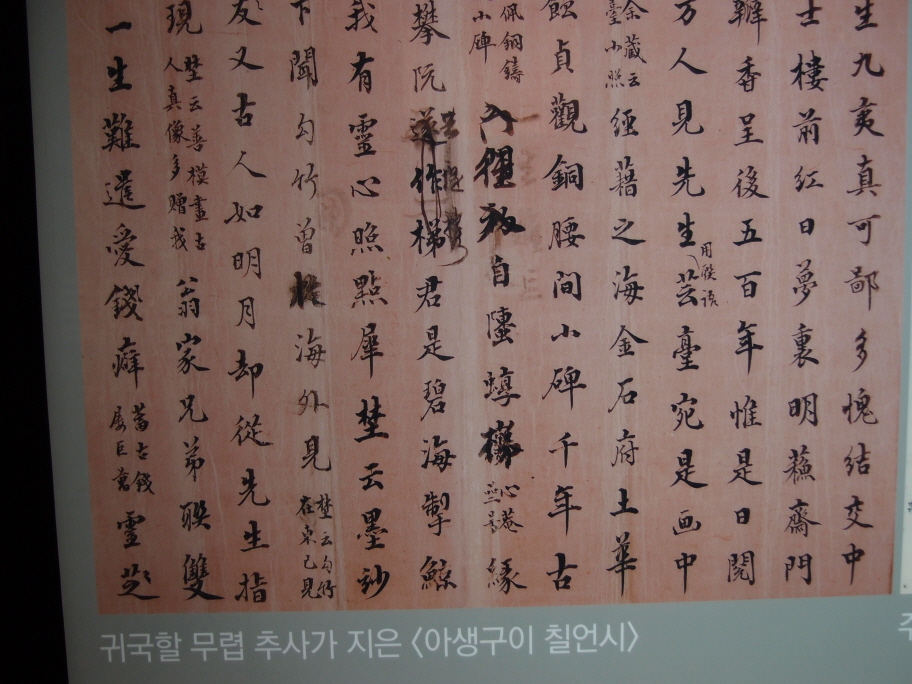 生九夷真可鄙多愧結交中
士樓前紅日夢裏明蘓齋門
辦香呈後五百年惟是日閱
万人見先生芸臺宛是画中
余藏云臺小照 經藉之海金石府土華
蝕貞觀銅腰間小碑千年古
佩銅鑄小碑 自 緣
攀阮 作梯君是碧海掣鯨
我有靈心照點犀埜云墨玅
下聞勾竹曾 海外見 埜云勾竹在東已見
友又古人如明月却從先生指
現 埜云善模畫古人真像多贈我 翁家兄弟聯雙
一生難遣愛錢癖 蓄古錢屢巨萬 靈芝
귀국할 무렵 추사가 지은 〈아생구이 칠언시〉